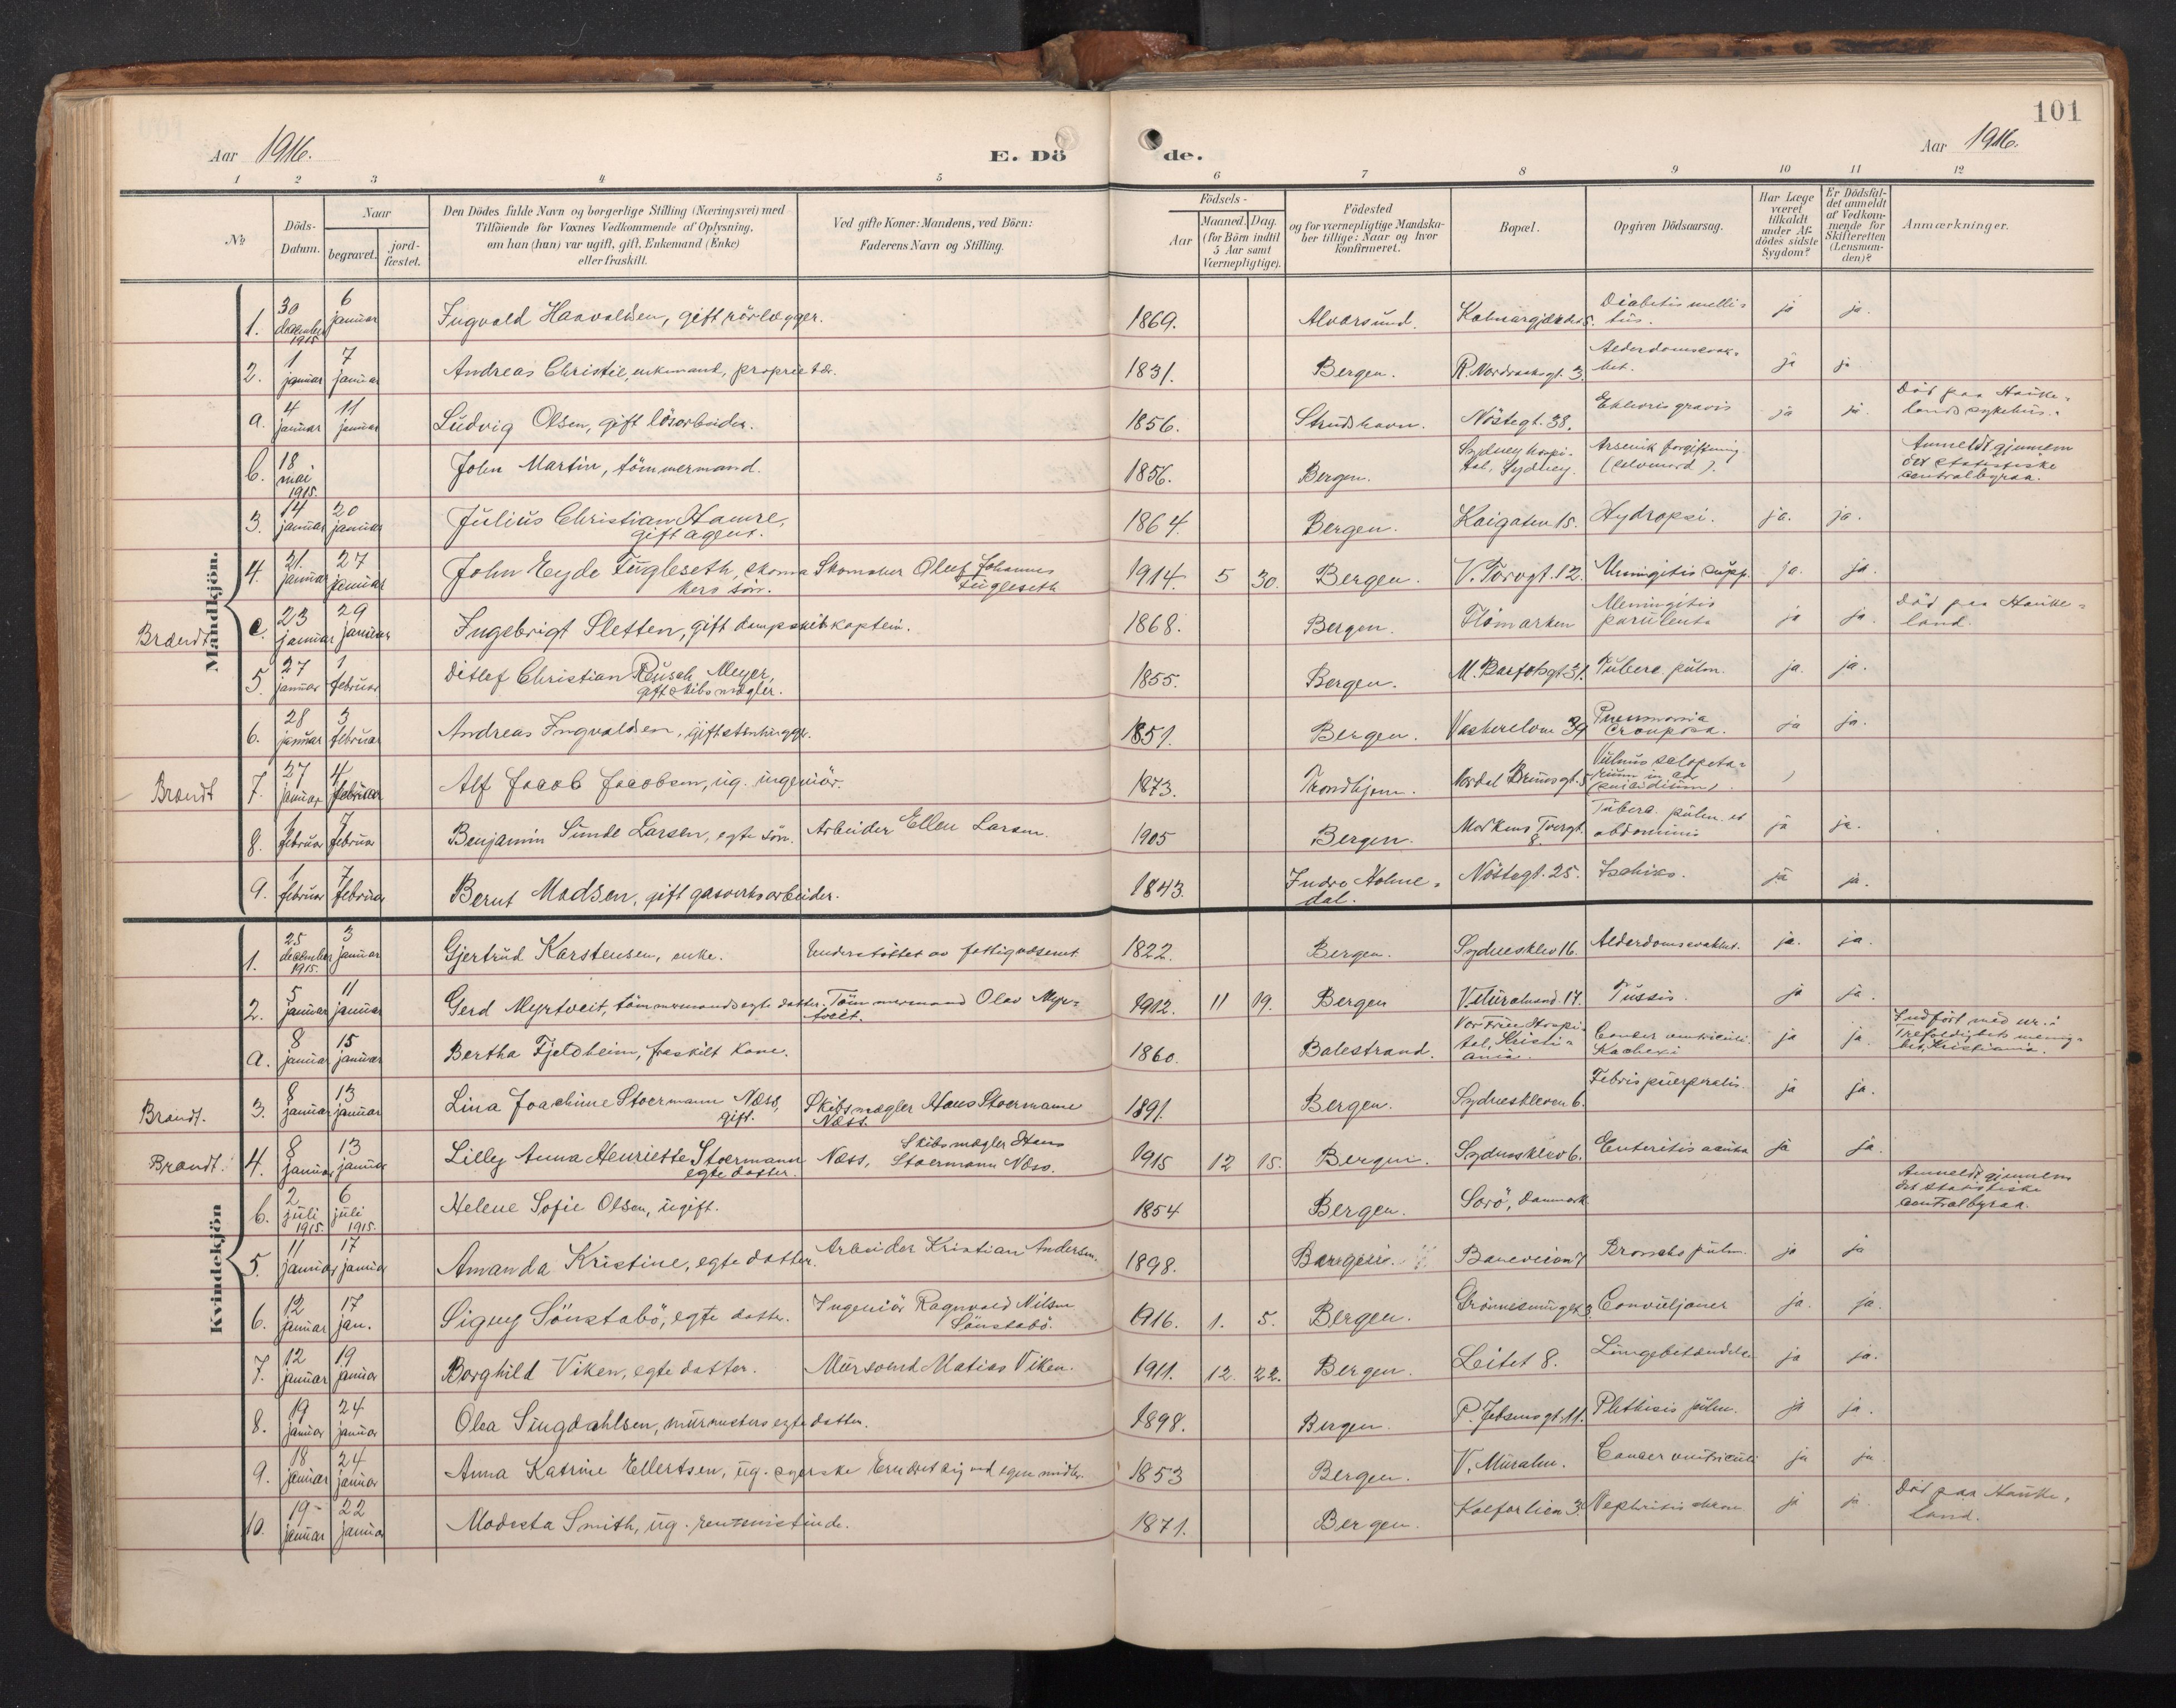 101
Aar 1916.
E. Dö
de.
Aar 1916.
1 2 3 4 5 6 7 8 9 10 11 12
No
Döds-Datum.
Naar
begravet.
jord-fæstet.
Den Dödes fulde Navn og borgerlige Stilling (Næringsvei) med
Tilföiende for Voxnes Vedkommende af Oplysning,
om han (hun) var ugift, gift, Enkemand (Enke)
eller fraskilt.
Ved gifte Koner: Mandens, ved Börn:
Faderens Navn og Stilling.
Födsels-
Aar
Maaned. Dag.
(for Börn indtil
5 Aar samt
Værnepligtige).
Födested
og for værnepligtige Mandska-
ber tillige: Naar og hvor
konfirmeret.
Bopæl.
Opgiven Dödsaarsag.
Har Læge
været
tilkaldt
under Af-
dödes sidste
Sygdom?
Er Dödsfal-
det anmeldt
af Vedkom-
mende for
Skifteretten
(Lensman-
den)?
Anmærkninger.
Mandkjön.
1. 30 december 1915 6 januar Ingvald Haavaldsen, gift rörlægger. 1869. Alversund. Diabetis mellitus. ja ja.
2. 1 januar 7 januar Andreas Christie, enkemand, proprietær. 1831. Bergen. R. Nordraaksgt. 3. Alderdomssvak-het. ja ja
a. 4 januar 11 januar Ludvig Olsen, gift lösarbeider. 1856. Strudshavn. Nöstegt. 38. gravis ja ja. Död paa Hauke-lands sykehus.
b. 18 mai 1915. John Martin, tömmermand. 1856. Bergen. Sydney hospi-tal, Sydney. Arsenik forgiftning. (selvmord). Anmeldt gjennem det statistiske centralbyraa.
3. 14 januar 20 januar Julius Christian Hamre, gift agent. 1864. Bergen. Kaigaten 15. Hydropsi. ja. ja.
4. 21. januar 27 januar John Eyde Fugleseth, skomakers sön. Skomaker Oluf Johannes Fugleseth 1914 5 30. Bergen. V. Torvgt. 12. Meningitis supp. ja. ja.
Brandt c. 23 januar 29 januar Ingebrigt Sletten, gift dampskibskaptein. 1868. Bergen. Flömarken Meningitis purulenta ja ja. Död paa Hauke-land.
5. 27 januar 1 februar Ditlef Christian Reusch Meyer, gift skibsmægler. 1855. Bergen. M. Barfotsgt 31. Tuberc. pulm. ja. ja.
6. 28 januar 3 februar Andreas Ingvaldsen, gift stenhugger. 1851. Bergen. 39 Pneumonia crouposa. ja ja.
Brandt 7. 27 januar 4 februar Alf Jacob Jacobsen, ug. ingeniör. 1873. Trondhjem. Nordal Brunsgt. 5 Vulnus sclopeta-rium in cor (suicidium).
8. 1 februar 7 februar Benjamin Sunde Larsen, egte sön. Arbeider Ellen Larsen. 1905 Bergen. Markens Tvergt. 8. Tuberc. pulm. et abdominis ja ja.
9. 1 februar 7 februar Bernt Madsen, gift gasverksarbeider. 1843. Indre Holme-dal. Nöstegt. 25. Ischias. ja ja.
Kvindekjön
1. 25 december 1915. 3 januar Gjertrud Karstensen, enke. Understöttet av fattigvæsenet 1822. Bergen. Sydnesklev 16. Alderdomssvakhet. ja. ja.
2. 5 januar 11 januar Gerd Myrtveit, tömmermands egte datter. Tömmermand Olav Myr-tveit. 1912. 11 19. Bergen V. Muralmend. 17. Tussis. ja ja.
a. 8 januar 15 januar Bertha Fjeldheim, fraskilt kone. 1860. Balestrand. Vor Frue Hospi-tal, Kristi-ania. Cancer ventriculi. Kachexi ja ja. Indfört med nr. i Trefoldighets menig-het, Kristiania.
Brandt. 3. 8 januar 13 januar Lina Joachime Stoermann Næss, gift. Skibsmægler Hans Stoermann Næss. 1891. Bergen. Sydneskleven 6. Febris puerperalis. ja ja.
Brandt. 4. 8 januar 13 januar Lilley Anna Henriette Stoermann Næss, egte datter. Skibsmægler Hans Stoermann Næss. 1915 12 15. Bergen. Sydnesklev 6. Enteritis acuta ja ja.
b. 2 juli 1915. 6 juli 1915. Helene Sofie Olsen, ugift. 1854 Bergen. Sorö, Danmark Anmeldt gjennem det statistiske centralbyraa.
5. 11 januar 17 januar Amanda Kristine, egte datter. Arbeider Kristian Andersen. 1898. Bergen. Baneveien 7 pulm. ja ja
6. 12 januar 17 jan. Signy Sönstabö, egte datter. Ingeniör Ragnvald Nilsen Sönstabö. 1916. 1. 5. Bergen. Grönnesmuget 3. Convulsjoner ja. ja.
7. 12 januar 19 januar Borghild Viken, egte datter. Mursvend Matias Viken. 1911. 12. 22. Bergen. Leitet 8. Lungebetændelse ja ja.
8. 19 januar 24 januar Olea Singdahlsen, murmesters egte datter. 1898. Bergen. P. Jebsensgt. 11. Phthisis pulm. ja ja.
9. 18 januar 24 januar Anna Katrine Ellertsen, ug. syerske Ernæret sig ved egne midler. 1853 Bergen. V. Muralm. Cancer ventriculi ja ja.
10. 19 januar 22 januar Modesta Smith, ug. rentenistinde. 1871. Bergen. Kalfarlien 3. Nephritis chron. ja ja. Död paa Hauke-land.